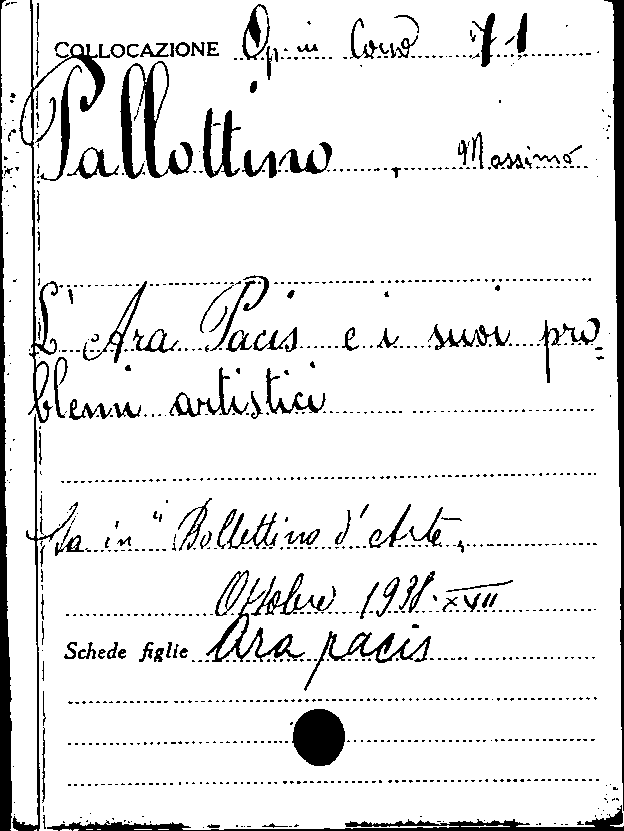 COLLOCAZIONE Op. in Corso 71
Pallottino, Massimo
L'Ara Pacis e i suoi pro=
blemi artistici
Sa in "Bollettino d'Arte"
Ottobre 1938-XVII
Schede figlie Ara pacis